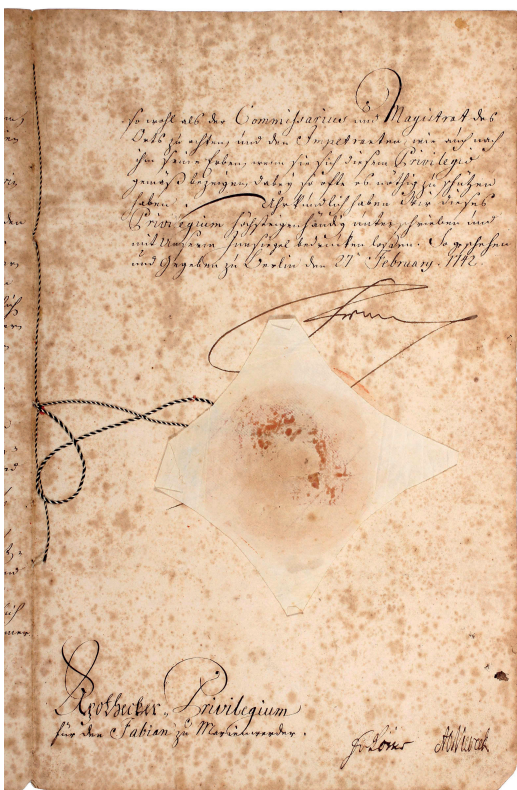 so wohl als der Commissarius und Magistrat des
Orts zu achten, und den Impetranten, wie auch nach
ihm seine Erben, wenn sie sich diesem Privilegio
gemäß bezeigen, dabey so offte es nöthig zu schützen
haben. Uhrkundlich haben Wir dieses
Privilegium höchsteigenhändig unterschrieben und
mit Unserm Innsiegel bedrucken lassen. So geschehen
und Gegeben zu Berlin den 27. February. 1742.
Apothecker Privilegium
für den Fabian zu Marienwerder.